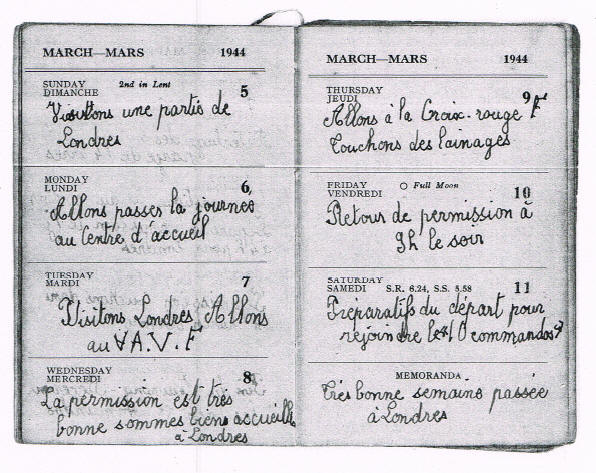 MARCH—MARS 1944
SUNDAY
DIMANCHE 2nd in Lent 5
Visitons une partie de
Londres
MONDAY
LUNDI 6
Allons passer la journée
au Centre d'accueil
TUESDAY
MARDI 7
Visitons Londres Allons
au V.A.V.F
WEDNESDAY
MERCREDI 8
La permission est très
bonne sommes biens accueilli
à Londres
MARCH—MARS 1944
THURSDAY
JEUDI 9
Allons à la Croix-rouge F
Touchons des lainages
FRIDAY
VENDREDI Full Moon 10
Retour de permission à
9h le soir
SATURDAY
SAMEDI S.R. 6.24, S.S. 5.58 11
Préparatifs du départ pour
rejoindre le 10 commandos
MEMORANDA
Très bonne semaine passée
à Londres